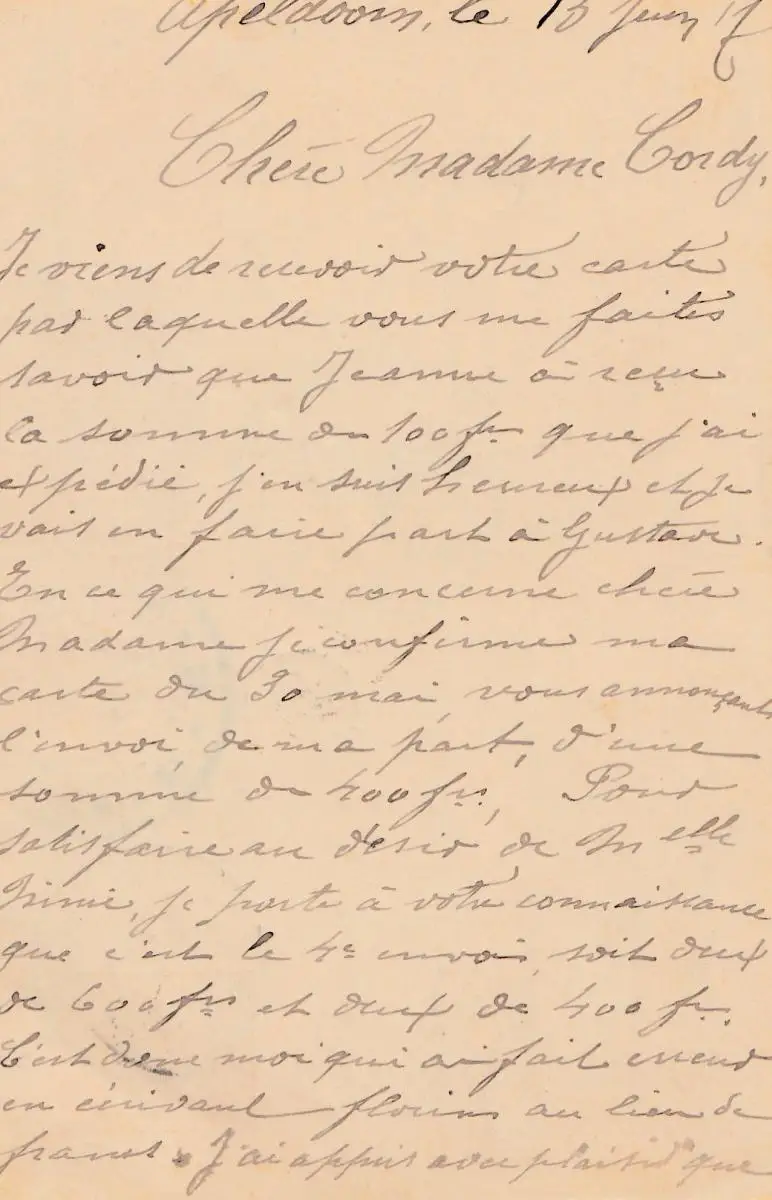 Apeldoorn, le 13 Juin 17
Chère Madame Cordy,
Je viens de recevoir votre carte
par laquelle vous me faites
savoir que Jeanne à reçu
la somme de 100 frs que j'ai
expédié, j'en suis heureux et je
vais en faire part à Gustave.
En ce qui me concerne chère
Madame je confirme ma
carte du 30 mai, vous annonçant
l'envoi, de ma part, d'une
somme de 400 frs, Pour
satisfaire au désir, de Melle
Mimie, je porte à votre connaissance
que c'est le 4e envoi, soit deux
de 600 frs et deux de 400 frs.
C'est donc moi qui ai fait erreur
en écrivant florins au lieu de
francs. J'ai appris avec plaisir que